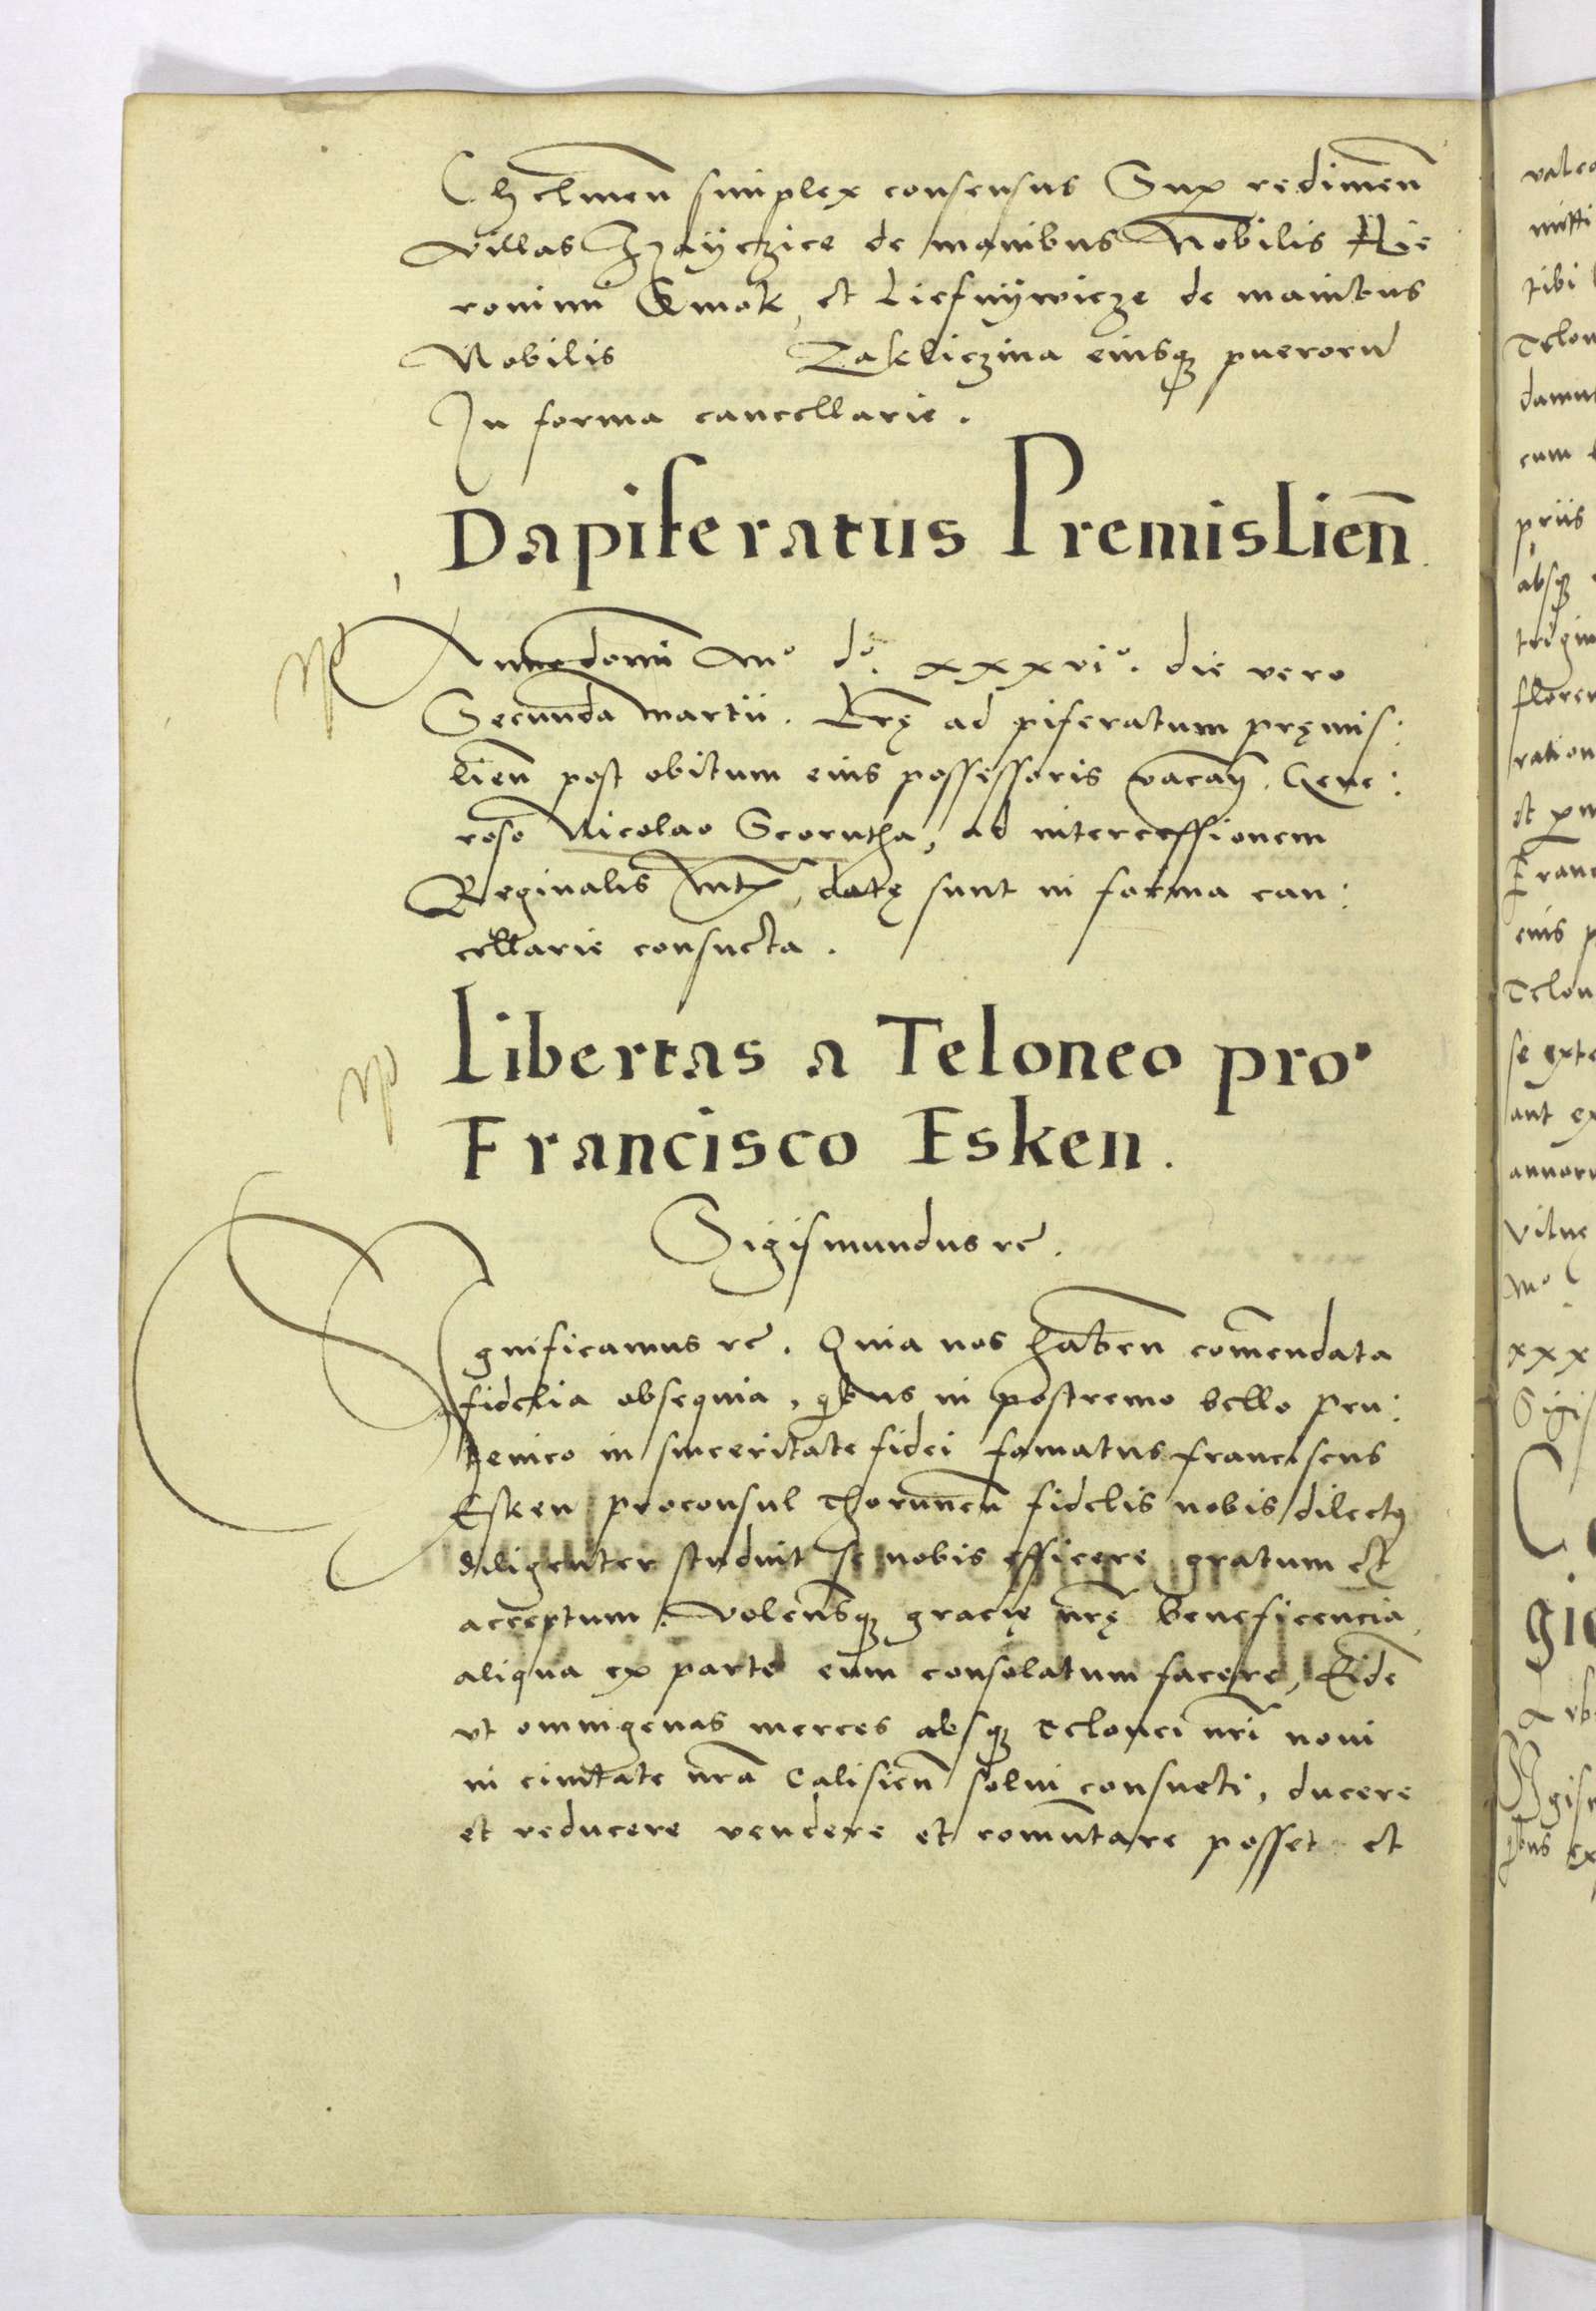 Chelmen̄ simplex consensus Sup redimen̄
villas Zayczice de manibus Nobilis Hie
ronimi Gmok, et Liesnywicze de manibus
Nobilis Zakliczina eiusqȝ puerorū
In forma cancellarie.
Dapiferatus Premislien̄
Anno domi M° d° xxxvi°. die vero
Secunda martii. Lrę ad piferatum pręmis:
lien̄ post obitum eius possessoris vacan̄. Gene:
roso Nicolao Scorutha, ad intercessionem
Reginalis Mtis, datę sunt in forma can:
cellarie consueta.
Libertas a Teloneo pro
Francisco Esken.
Sigismundus rc.
Significamus rc. Quia nos haben̄ com̄endata
fidelia obsequia, qibus in postremo bello pru:
tenico in sinceritate fidei famatus franciscus
Esken proconsul Thorunen̄ fidelis nobis dilectꝰ
diligenter studuit se nobis efficere gratum et
acceptum. Volensqȝ gracię nrę beneficencia
aliqua ex parte eum consolatum facere, Eidē
vt omnigenas merces absqȝ Telonei nri̅ noui
in ciuitate nrā Calisien̄ solui consueti, ducere
et reducere vendere et comutare posset et